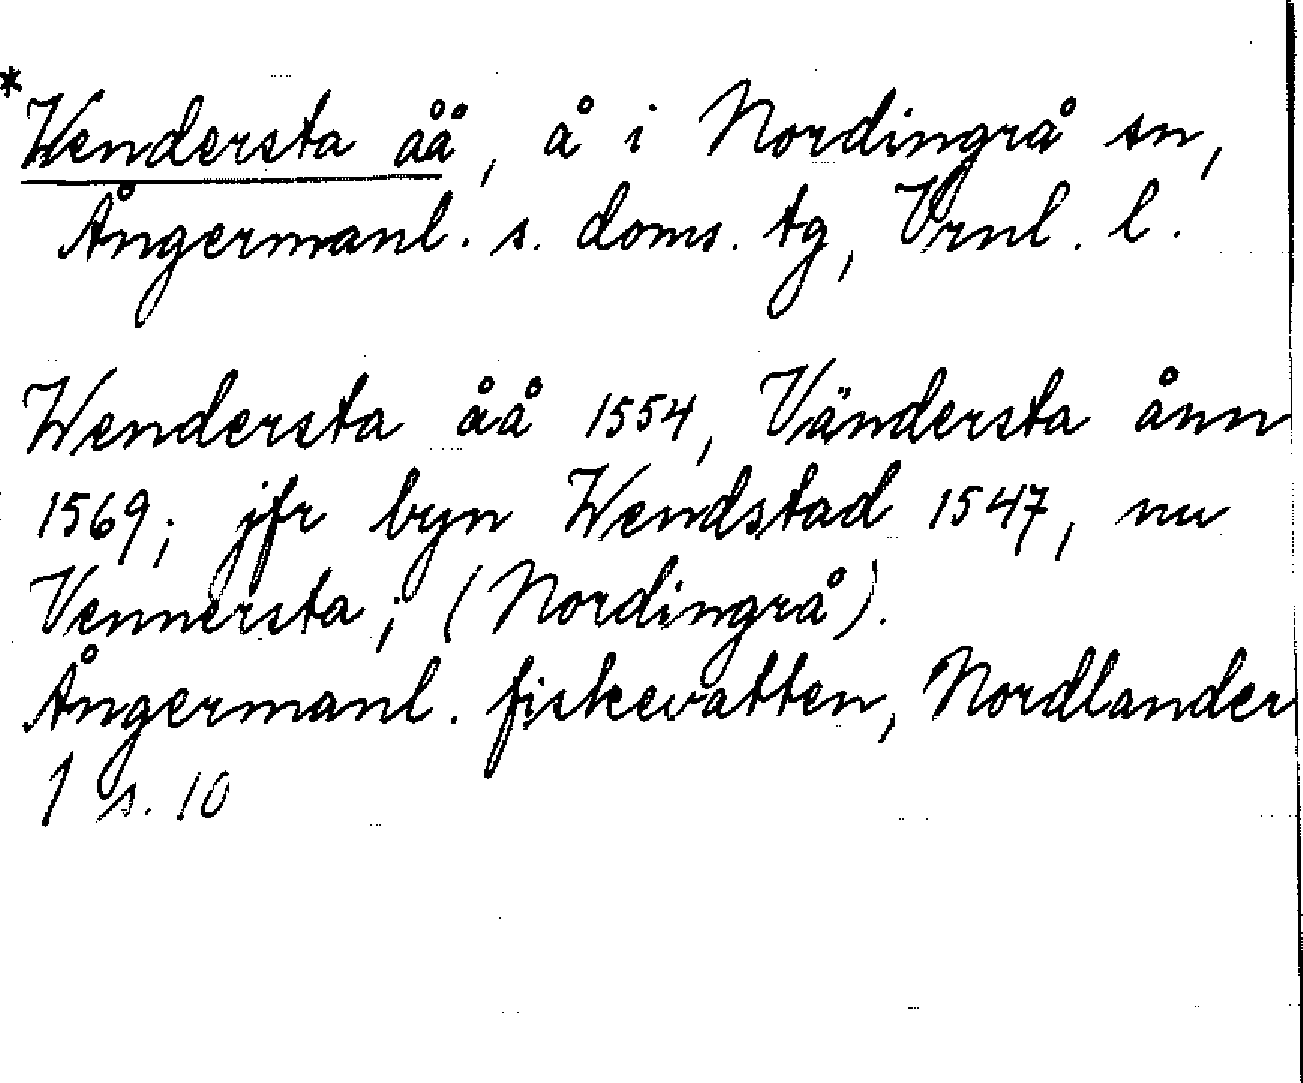 *Wendersta åå, å i Nordingrå sn,
Ångermanl. s. doms. tg, Vrnl. l.
Wendersta åå 1554, Vändersta ånn
1569; jfr byn Wendstad 1547, nu
Vennersta; (Nordingrå).
Ångermanl. fiskevatten, Nordlander
1 s. 10